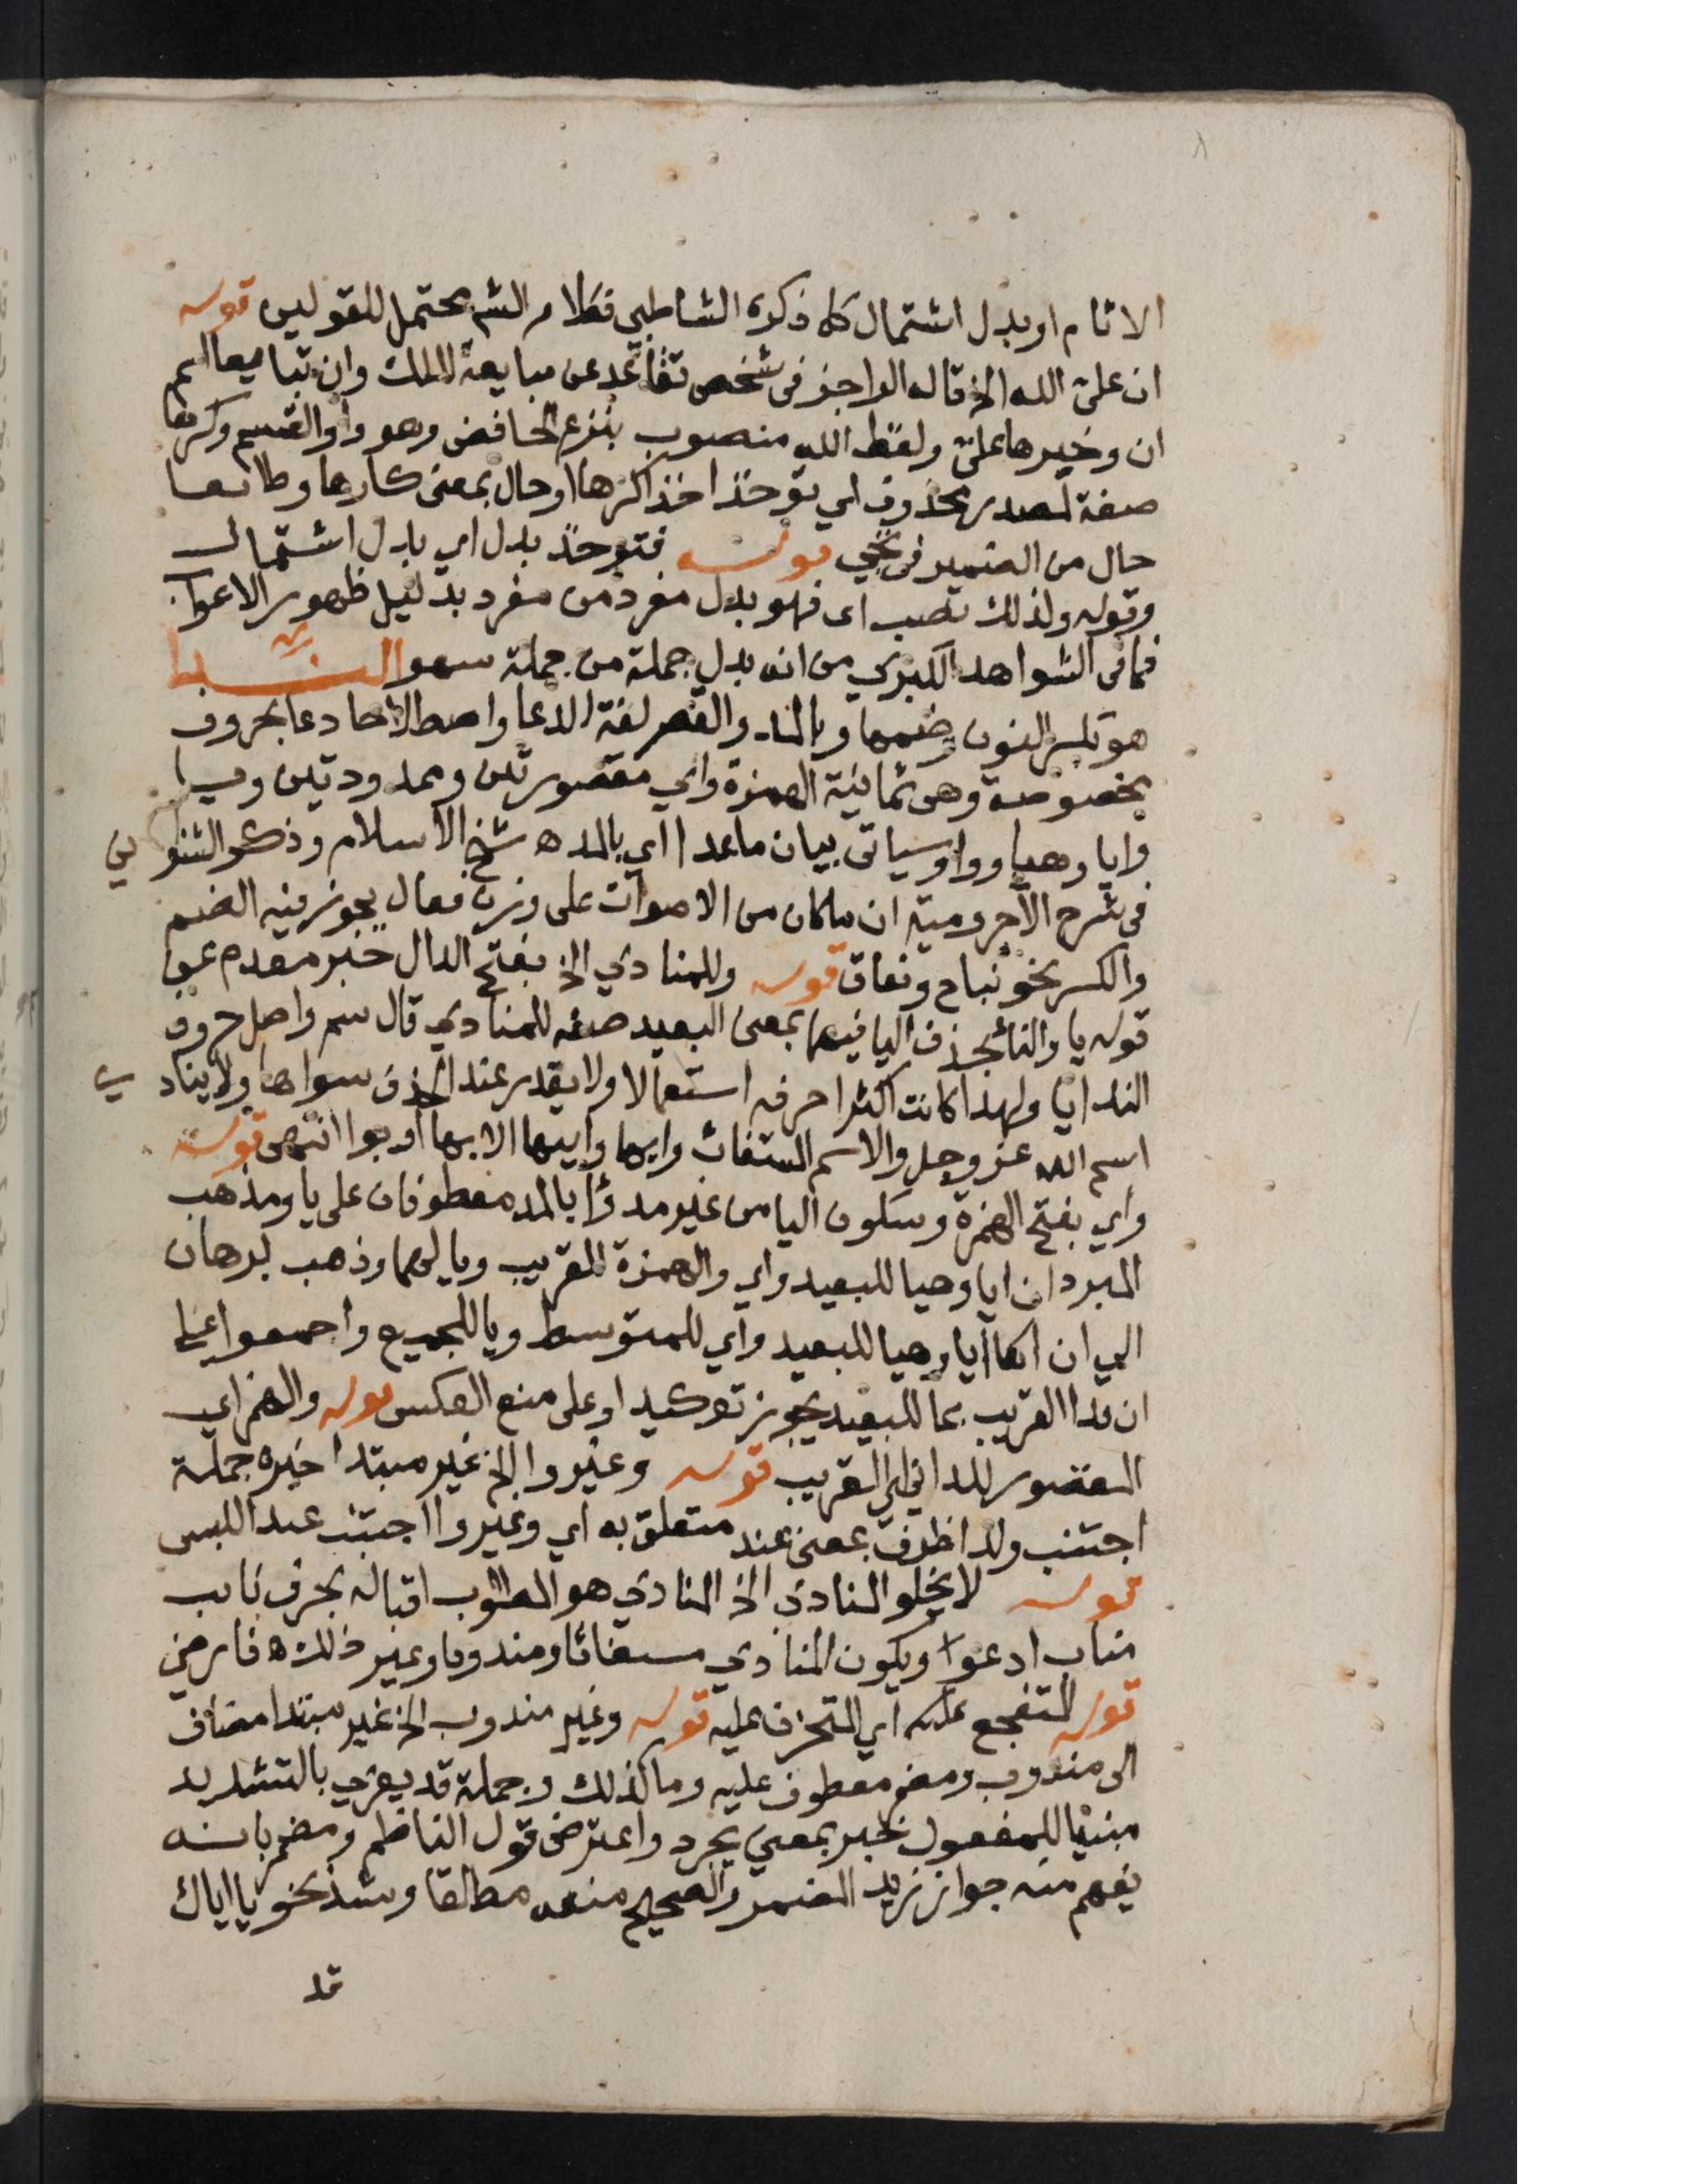 الاثام او بدل اشتمال كله ذكره الشاطبي فكلام الشم محتمل للقولين قوله
ان على الله الخ قاله الراجز فى شخص تقاعد عن مبايعة الملك وان تبايعا اسم
ان وخبرها على ولفظ الله منصوب بنزع الخافض وهو واو القسم وكرها
صفة لمصدر محذوف اي توخذ اخذا كرها او حال بمعنى كارها وطائعا
حال من الضمير فى تجي قوله فتوخذ بدل اي بدل اشتمال
وقوله ولذلك نصب اى فهو بدل مفرد من مفرد بدليل ظهور الاعراب
فما فى الشواهد الكبري من انه بدل جملة من جملة سهو الندا
هو بكسر النون وضمها وبالمد والقصر لغة الدعا واصطلاحا دعا بحروف
مخصوصة وهى ثمانية الهمزة واي مقصورتين وممدودتين ويا
وايا وهيا ووا وسياتى بيان ما عدا اي بالمد ه شيخ الاسلام وذكر الشنواني
فى شرح الاجرومية ان ماكان من الاصوات على وزن فعال يجوز فيه الضم
والكسر نحو نباح ونعاق قوله وللمنادي الخ بفتح الدال خبر مقدم عن
قوله يا والنائ بحذف اليا فيهما بمعنى البعيد صفه للمنادي قال سم واصل حروف
الندا يا ولهذا كانت اكثر احرفه استعمالا ولا يقدر عند الحذف سواها ولا ينادي
اسم الله عز وجل والاسم المستغاث وايها وايتها الا بها او بوا انتهى قوله
واي بفتح الهمزة وسكون اليا من غير مد وآ بالمد معطوفان على يا ومذهب
المبرد ان ايا وهيا للبعيد واي والهمزة للقريب ويا لهما وذهب برهان
الي ان ايا وهيا للبعيد واي للمتوسط ويا للجميع واجمعوا على
ان ندا القريب بما للبعيد يجوز توكيدا وعلى منع العكس قوله والهمز اي
المقصور للداني اي القريب قوله وغير وا الخ غير مبتدا خبره جملة
اجتنب ولدا ظرف بمعنى عند متعلق به اي وغير وا اجتنب عند اللبس
قوله لا يخلو المنادي الخ المنادي هو المطلوب اقباله بحرف نايب
مناب ادعوا ويكون المنادي مستغاثا ومندوبا وغير ذلك ه فارضي
قوله المتفجع عليه اي المتحزن عليه قوله وغير مندوب الخ غير مبتدا مضاف
الى مندوب ومضمر معطوف عليه وما كذلك وجملة قد يعري بالتشديد
مبنيا للمفعول خبر بمعني يجرد واعترض قول الناظم ومضمر بانه
يفهم منه جواز ندا المضمر والصحيح منعه مطلقا وشذ نحو يا اياك
قد